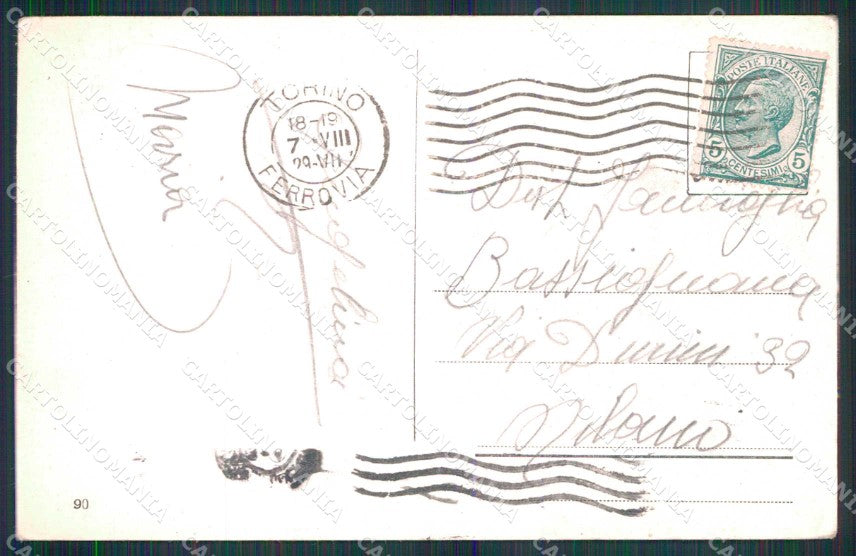 Maria
TORINO
18-19
7-VIII
FERROVIA
POSTE ITALIANE
5 CENTESIMI 5
Dist. Famiglia
Bassignana
Via Durini 32
Milano
90
CARTOLINOMANIA